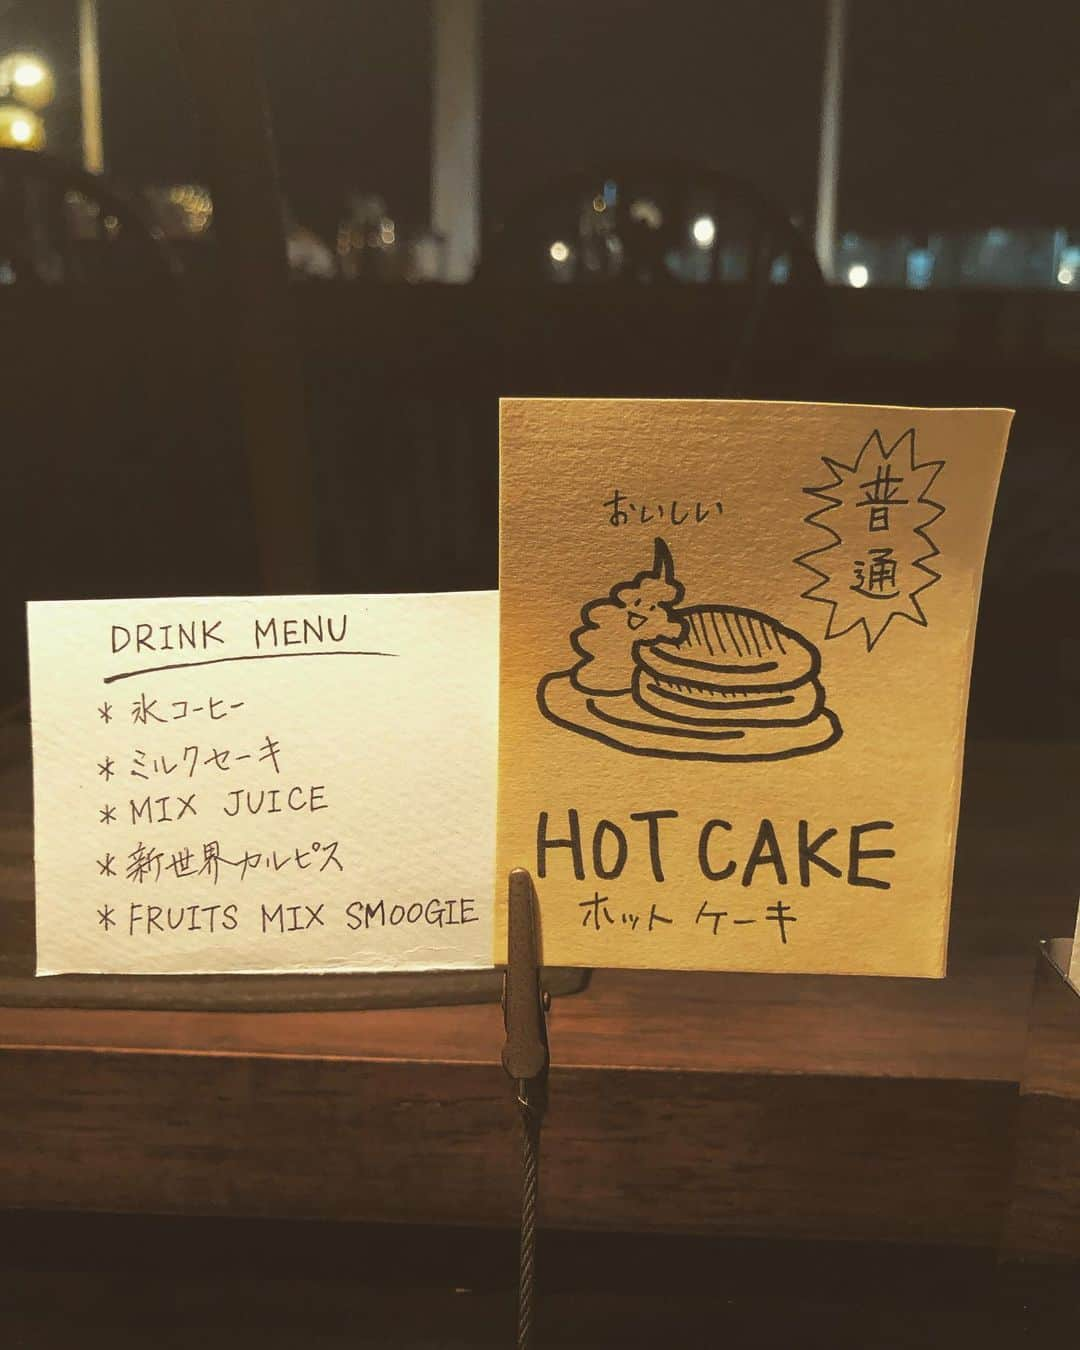 DRINK MENU
* 氷コーヒー
* ミルクセーキ
* MIX JUICE
* 新世界カルピス
* FRUITS MIX SMOOGIE
普通
おいしい
HOT CAKE
ホットケーキ